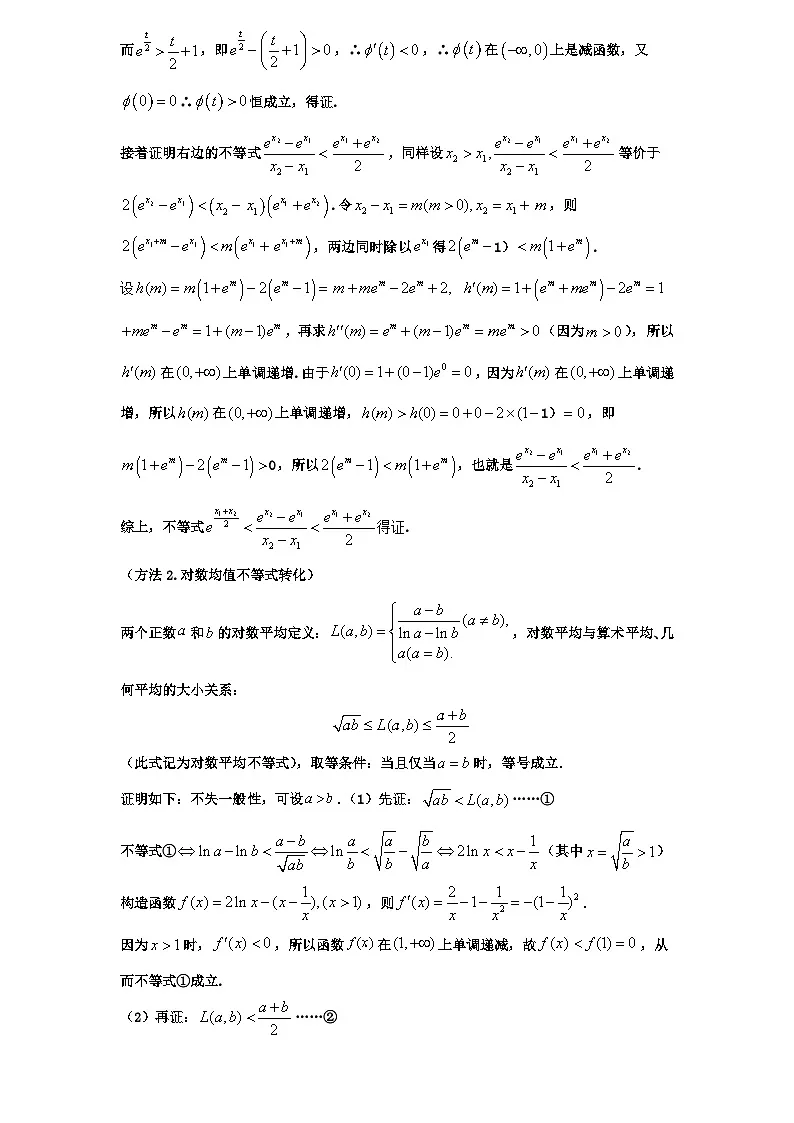 而e^{t/2} > t/2 + 1，即e^{t/2} − (t/2 + 1) > 0，∴φ′(t) < 0，∴φ(t)在(−∞,0)上是减函数，又
φ(0) = 0∴φ(t) > 0恒成立，得证.
接着证明右边的不等式(e^{x₂} − e^{x₁})/(x₂ − x₁) < (e^{x₁} + e^{x₂})/2，同样设x₂ > x₁, (e^{x₂} − e^{x₁})/(x₂ − x₁) < (e^{x₁} + e^{x₂})/2 等价于
2(e^{x₂} − e^{x₁}) < (x₂ − x₁)(e^{x₁} + e^{x₂}).令x₂ − x₁ = m(m > 0), x₂ = x₁ + m，则
2(e^{x₁+m} − e^{x₁}) < m(e^{x₁} + e^{x₁+m})，两边同时除以e^{x₁}得2(e^m − 1) < m(1 + e^m).
设h(m) = m(1 + e^m) − 2(e^m − 1) = m + me^m − 2e^m + 2, h′(m) = 1 + (e^m + me^m) − 2e^m = 1
+me^m − e^m = 1 + (m − 1)e^m，再求h′′(m) = e^m + (m − 1)e^m = me^m > 0（因为m > 0），所以
h′(m)在(0,+∞)上单调递增.由于h′(0) = 1 + (0 − 1)e^0 = 0，因为h′(m)在(0,+∞)上单调递
增，所以h(m)在(0,+∞)上单调递增，h(m) > h(0) = 0 + 0 − 2×(1 − 1) = 0，即
m(1 + e^m) − 2(e^m − 1) >0，所以2(e^m − 1) < m(1 + e^m)，也就是(e^{x₂} − e^{x₁})/(x₂ − x₁) < (e^{x₁} + e^{x₂})/2.
综上，不等式e^{(x₁+x₂)/2} < (e^{x₂} − e^{x₁})/(x₂ − x₁) < (e^{x₁} + e^{x₂})/2得证.
（方法2.对数均值不等式转化）
两个正数a和b的对数平均定义：L(a,b) = { (a − b)/(ln a − ln b) (a ≠ b), a(a = b). ，对数平均与算术平均、几
何平均的大小关系：
√ab ≤ L(a,b) ≤ (a + b)/2
（此式记为对数平均不等式），取等条件：当且仅当a = b时，等号成立.
证明如下：不失一般性，可设a > b.（1）先证：√ab < L(a,b)……①
不等式①⇔ ln a − ln b < (a − b)/√ab ⇔ ln a/b < √(a/b) − √(b/a) ⇔ 2ln x < x − 1/x（其中x = √(a/b) > 1）
构造函数f(x) = 2ln x − (x − 1/x), (x > 1)，则f′(x) = 2/x − 1 − 1/x² = −(1 − 1/x)².
因为x > 1时，f′(x) < 0，所以函数f(x)在(1,+∞)上单调递减，故f(x) < f(1) = 0，从
而不等式①成立.
（2）再证：L(a,b) < (a + b)/2……②